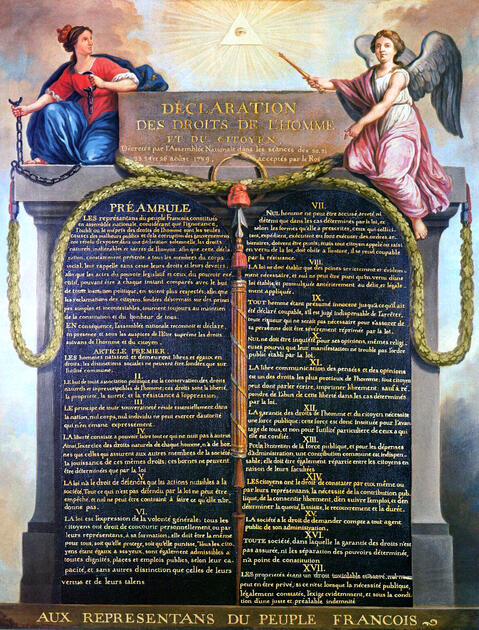 DÉCLARATION
DES DROITS DE L'HOMME
ET DU CITOYEN,
Décrétés par l'Assemblée Nationale dans les séances des 20, 21
23, 24 et 26 août 1789, acceptés par le Roi
PRÉAMBULE
LES représentans du peuple François, constitués
en assemblée nationale, considérant que l'ignorance,
l'oubli ou le mépris des droits de l'homme sont les seules
causes des malheurs publics et de la corruption des gouvernemens
ont résolu d'exposer dans une déclaration solemnelle, les droits
naturels, inaliénables et sacrés de l'homme; afin que cette décla-
ration, constamment présente à tous les membres du corps
social, leur rappelle sans cesse leurs droits et leurs devoirs;
afin que les actes du pouvoir législatif et ceux du pouvoir exé-
cutif, pouvant être à chaque instant comparés avec le but
de toute institution politique, en soient plus respectés; afin que
les réclamations des citoyens, fondées désormais sur des princi-
pes simples et incontestables, tournent toujours au maintien
de la constitution et du bonheur de tous.
EN conséquence, l'assemblée nationale reconnoit et déclare,
en présence et sous les auspices de l'Etre suprême les droits
suivans de l'homme et du citoyen.
ARTICLE PREMIER.
LES hommes naissent et demeurent libres et égaux en
droits, les distinctions sociales ne peuvent être fondées que sur
l'utilité commune.
II.
LE but de toute association politique est la conservation des droits
naturels et imprescriptibles de l'homme; ces droits sont la liberté,
la propriété, la sureté, et la résistance à l'oppression.
III.
LE principe de toute souveraineté réside essentiellement dans
la nation, nul corps, nul individu ne peut exercer d'autorité
qui n'en émane expressément.
IV.
LA liberté consiste à pouvoir faire tout ce qui ne nuit pas à autrui
Ainsi, l'exercice des droits naturels de chaque homme, n'a de bor-
nes que celles qui assurent aux autres membres de la société
la jouissance de ces mêmes droits; ces bornes ne peuvent
être déterminées que par la loi
V.
LA loi n'a le droit de défendre que les actions nuisibles à la
société. Tout ce qui n'est pas défendu par la loi ne peut être
empêché, et nul ne peut être contraint à faire ce qu'elle n'or-
donne pas.
VI.
LA loi est l'expression de la volonté générale; tous les
citoyens ont droit de concourir personnellement, ou par
leurs représentans, à sa formation; elle doit être la même
pour tous, soit qu'elle protege, soit qu'elle punisse. Tous les ci-
toyens étant égaux à ses yeux, sont également admissibles à
toutes dignités, places et emplois publics, selon leur ca-
pacité, et sans autres distinction que celles de leurs
vertus et de leurs talens
VII.
NUL homme ne peut être accusé, arrêté ni
détenu que dans les cas déterminés par la loi, et
selon les formes qu'elle a prescrites, ceux qui sollici-
tent, expédient, exécutent ou font exécuter des ordres ar-
bitraires, doivent être punis; mais tout citoyen appelé ou saisi
en vertu de la loi, doit obéir à l'instant, il se rend coupable
par la résistance.
VIII.
LA loi ne doit établir que des peines strictement et évidem-
ment nécessaire, et nul ne peut être puni qu'en vertu d'une
loi établie et promulguée antérierement au délit, et légale-
ment appliquée.
IX.
TOUT homme étant présumé innocent jusqu'à ce qu'il ait
été déclaré coupable, s'il est jugé indispensable de l'arrêter,
toute rigueur qui ne serait pas nécessaire pour s'assurer de
sa personne doit être sévèrement réprimée par la loi.
X.
NUL ne doit être inquiété pour ses opinions, mêmes religi-
euses pourvu que leur manifestation ne trouble pas l'ordre
public établi par la loi.
XI.
LA libre communication des pensées et des opinions
est un des droits les plus précieux de l'homme; tout citoyen
peut donc parler, écrire, imprimer librement, sauf à ré-
pondre de l'abus de cette liberté dans les cas déterminés
par la loi.
XII.
LA garantie des droits de l'homme et du citoyen nécessite
une force publique; cette force est donc instituée pour l'avan-
tage de tous, et non pour l'utilité particuliere de ceux à qui
elle est confiée.
XIII.
Pour l'entretien de la force publique, et pour les dépenses
d'administration, une contribution commune est indispen-
sable; elle doit être également répartie entre les citoyens en
raison de leurs facultées
XIV.
LES citoyens ont le droit de constater par eux même ou
par leurs représentans, la nécessité de la contribution publi-
que, de la consentir librement, d'en suivre l'emploi, et d'en
déterminer la quotité, l'assiette, le recouvrement et la durée.
XV.
LA société a le droit de demander compte à tout agent
public de son administration.
XVI.
TOUTE société, dans laquelle la garantie des droits n'est
pas assurée, ni la séparation des pouvoirs déterminée,
n'a point de constitution
XVII.
LES propriétés étant un droit inviolable et sacré, nul ne
peut en être privé, si ce n'est lorsque la nécessité publique,
légalement constatée, l'exige évidemment, et sous la condi-
tion d'une juste et préalable indemnité
AUX REPRESENTANS DU PEUPLE FRANCOIS